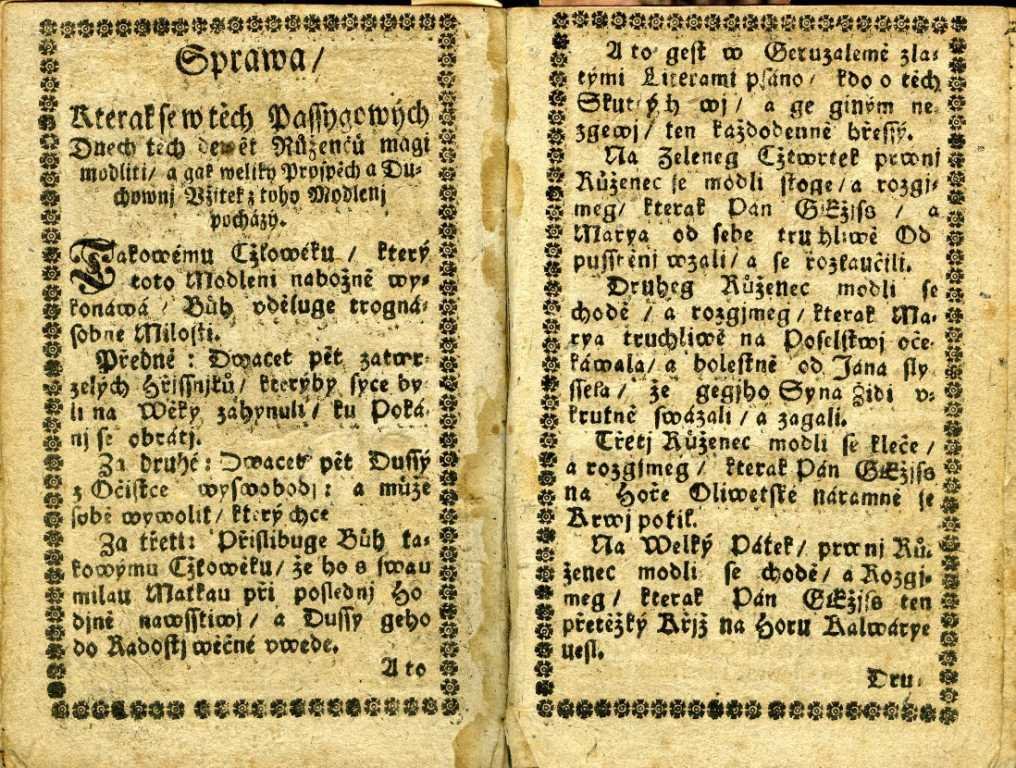 Sprawa /
Kterak se w těch Passygowých
Dnech těch dewět Růženců magi
modliti / a gak weliky Prospěch a Du-
chownj Vžitek z toho Modlenj
pocházy.
Takowému Cžlowěku / který
toto Modleni nabožně wy-
konáwá / Bůh vděluge trogná-
sobne Milosti.
Předně : Dwacet pět zatwr-
zelých Hřissnjků / kteryby syce by-
li na Wěky zahynuli / ku Poká-
nj se obrátj.
Za druhé : Dwacet pět Dussý
z Očistce wyswobodj : a může
sobě wywolit / který chce
Za třetí : Přislibuge Bůh ta-
kowýmu Cžlowěku / že ho s swau
milau Matkau při poslednj Ho
djně nawsstiwj / a Dussy geho
do Radostj wěčné vwede.
A to
A to gest w Geruzalemě zla-
tými Literami psáno / kdo o těch
Skutcých wj / a ge giným ne-
zgewj / ten každodenně hřessý.
Na Zeleneg Cžtwrtek prwnj
Růženec se modli stoge / a rozgj-
meg / kterak Pán GEžjss / a
Marya od sebe truchliwě Od
pusstěnj wzali / a se rozkaučili.
Druheg Růženec modli se
chodě / a rozgjmeg / kterak Ma-
rya truchliwě na Poselstwj oče-
káwala / a bolestně od Jána sly
ssela / že gegjho Syna Židi v-
krutně swázali / a zagali.
Třetj Růženec modli se kleče /
a rozgjmeg / kterak Pán GEžjss
na Hoře Oliwetské náramně se
Krwj potil.
Na Welký Pátek / prwnj Rů-
ženec modli se chodě / a Rozgj-
meg / kterak Pán GEžjss ten
přetěžký Křjž na Horu Kalwárye
nesl.
Dru-